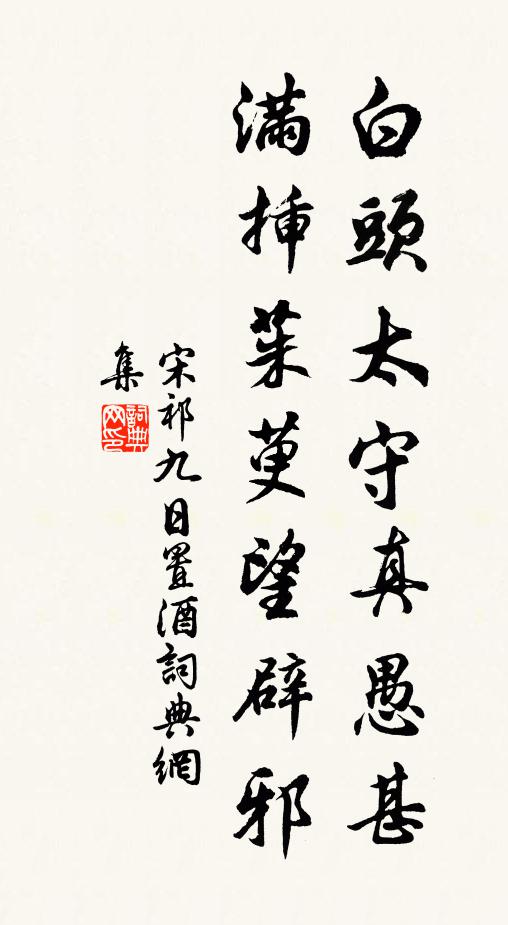 白頭太守真愚甚
滿挿茱萸望辟邪
宋祁九日置酒詞典網
集
詞典
网印